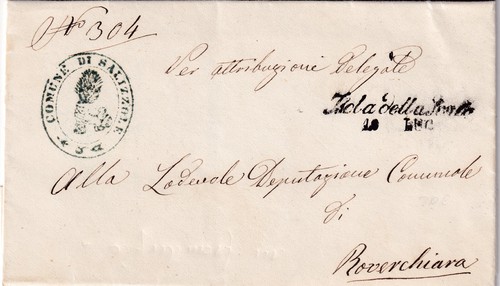 N° 304
COMUNE DI SALIZZOLE
Per attribuzione Delegate
Isola della Scala
LUG
Alla Lodevole Deputazione Comunale
di
Roverchiara